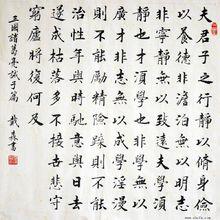 夫君子之行靜以脩身儉
以養德非澹泊無以明志
非寧靜無以致遠夫學須
靜也才須學也非學無以
廣才非志無以成學淫漫
則不能勵精險躁則不能
治性年與時馳意與日去
遂成枯落多不接世悲守
窮廬將復何及
三國諸葛亮誡子篇 戴 書